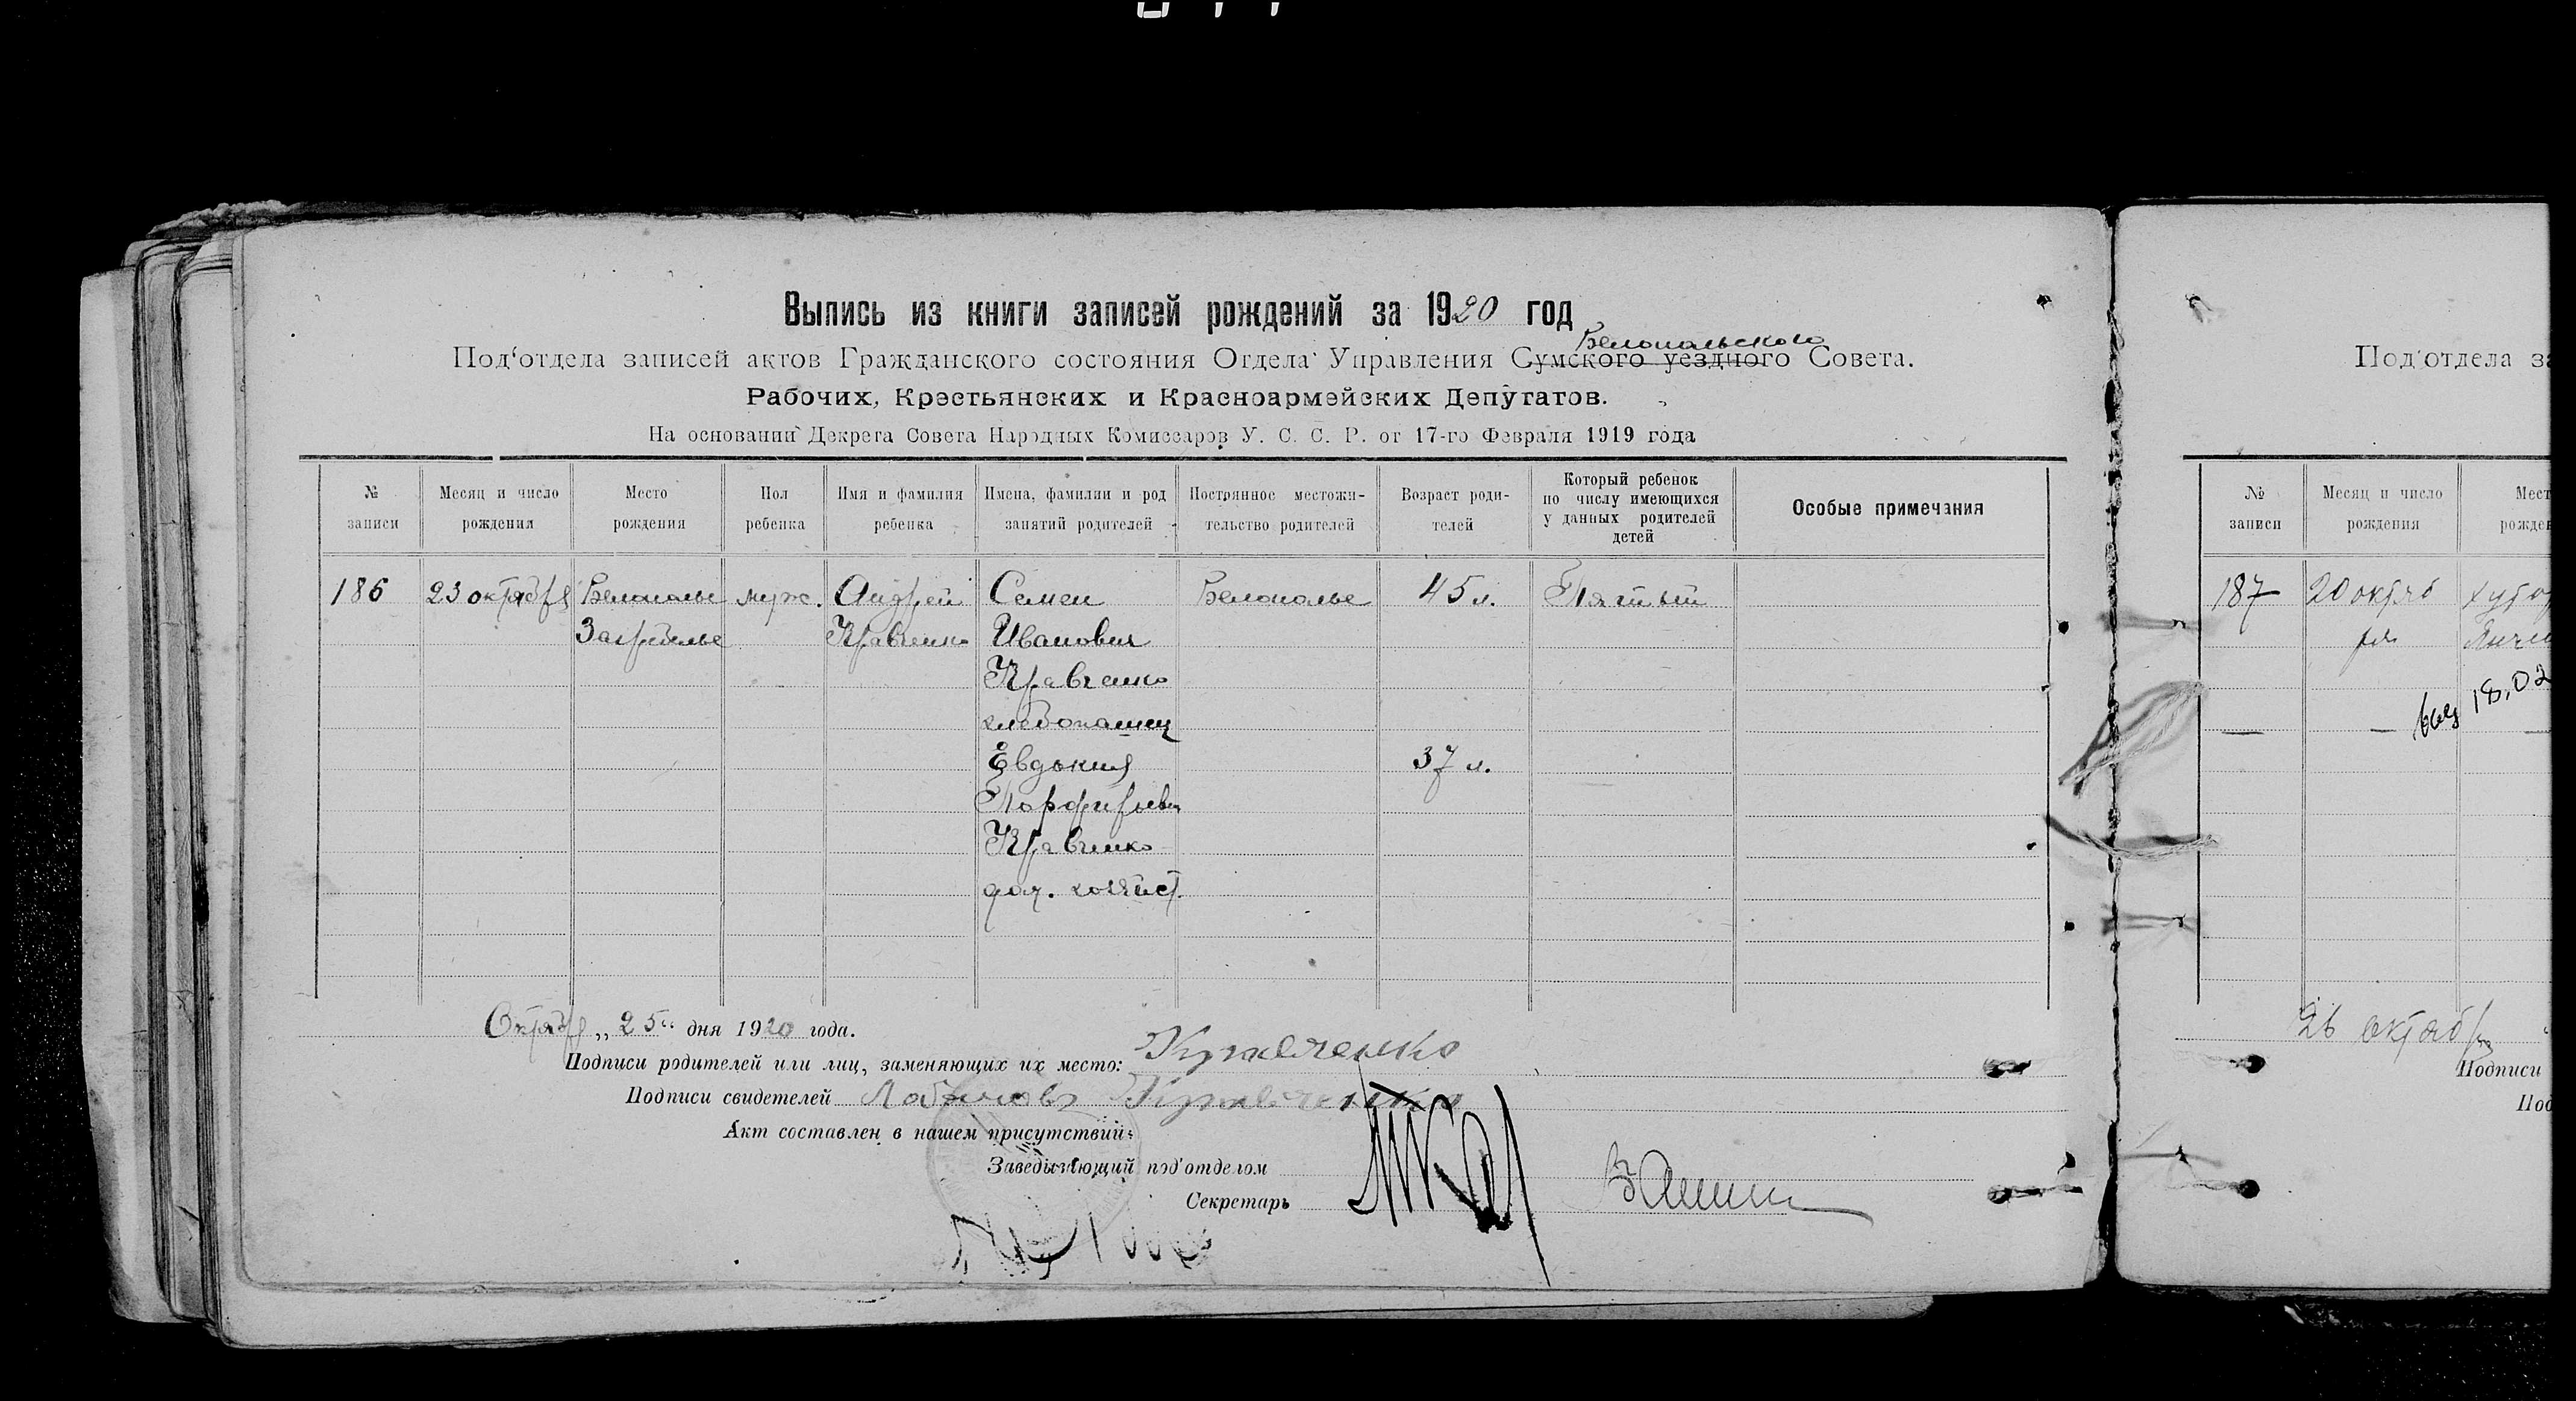 Выпись из книги записей рождений за 1920 год
Белопольского
Под'отдела записей актов Гражданского состояния Отдела Управления Сумского уездного Совета.
Рабочих, Крестьянских и Красноармейских Депутатов.
На основании Декрета Совета Народных Комиссаров У. С. С. Р. от 17-го Февраля 1919 года
№ записи
Месяц и число рождения
Место рождения
Пол ребенка
Имя и фамилия ребенка
Имена, фамилии и род занятий родителей
Постоянное местожи-
тельство родителей
Возраст роди-
телей
Который ребенок
по числу имеющихся
у данных родителей
детей
Особые примечания
186 23 октября Белополье муж. Андрей Семен Белополье 45 л. Пятый
Заребелье Кравченко Иванович
Кравченко
хлебопашец
Евдокия 37 л.
Порфирьевн
Кравченко
дом. хозяйст.
Октября „25“ дня 1920 года.
Подписи родителей или лиц, заменяющих их место: Кравченко
Подписи свидетелей Кравченко
Акт составлен в нашем присутствии:
Заведывающий под'отделом
Секретарь
Под'отдела за
№ записи
Месяц и число рождения
Мест
рожден
187 20 октяб
ря
18.02
26 октяб
Подписи
Под